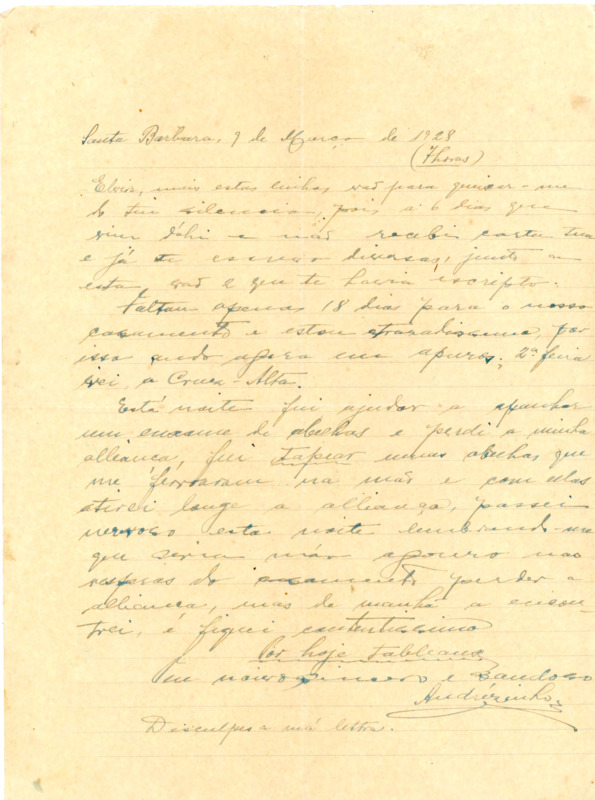 Santa Barbara, 9 de Março de 1928
(7 horas)
Elvira, mais estas linhas vaõ para queixar-me
do teu silencio, pois a 6 dias que
vim dahi e naõ recebi carta tua
e já te escrevo diversas, junto a
esta vaõ 2 que te havia escripto.
Faltam apenas 18 dias para o nosso
casamento e estou atrazadissimo, por
isso ando agora em apuros, 2ª feira
irei, a Cruz-Alta.
Está noite fui ajudar a apanhar
um enxame de abelhas e perdi a minha
alliança, fui tapear umas abelhas que
me ferroaram na maõ e com ellas
atirei longe a alliança, passei
nervoso esta noite lembrando-me
que seria máo agouro nas
vesperas do casamento perder a
alliança, mas de manhã a encon-
trei, é fiquei contentissimo
Por hoje
teu noivo sincero e saudoso
Andrézinho
Desculpe a má lettra.